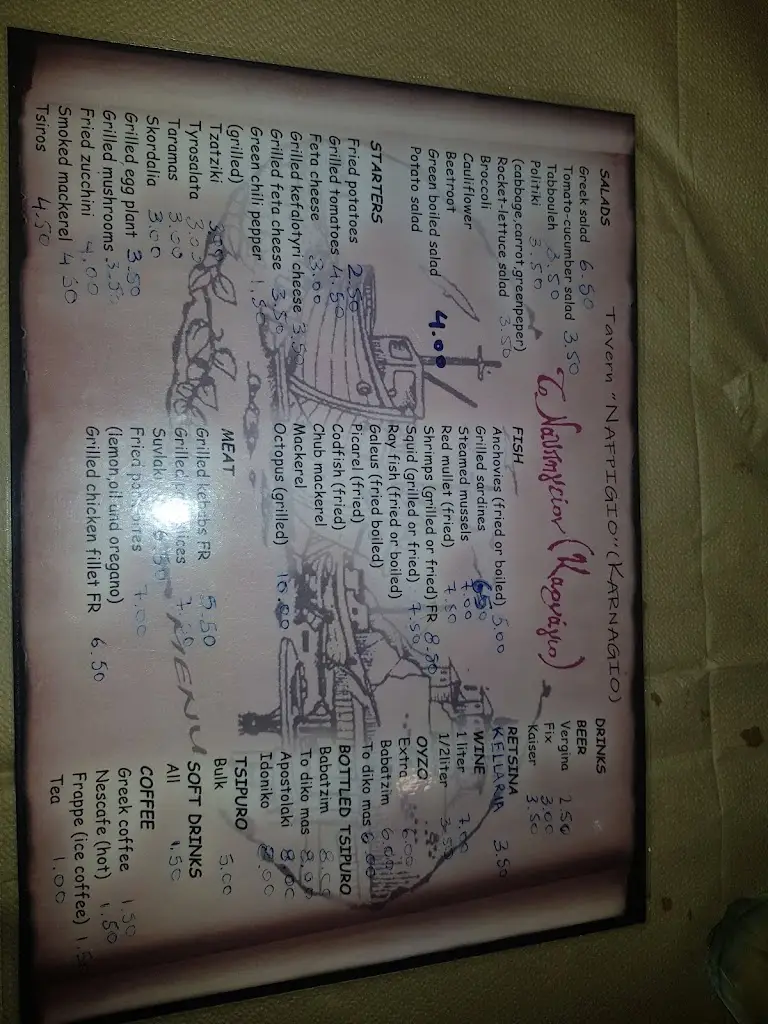 Tavern "NAFPIGIO" (KARNAGIO)
Το Ναυπηγείον (Καρνάγιο)
SALADS
Greek salad 6.50
Tomato-cucumber salad 3.50
Tabbouleh 3.50
Politiki 3.50
(cabbage,carrot,greenpeper)
Rocket-lettuce salad 3.50
Broccoli
Cauliflower
Beetroot
Green boiled salad 4.00
Potato salad
STARTERS
Fried potatoes 2.50
Grilled tomatoes 4.50
Feta cheese 3.00
Grilled kefalotyri cheese 3.50
Grilled feta cheese 3.50
Green chili pepper 1.50
(grilled)
Tzatziki
Tyrosalata 3.00
Taramas 3.00
Skordalia 3.00
Grilled egg plant 3.50
Grilled mushrooms 3.50
Fried zucchini 4.00
Smoked mackerel 4.50
Tsiros 4.50
FISH
Anchovies (fried or boiled) 5.00
Grilled sardines
Steamed mussels
Red mullet (fried) 7.50
Shrimps (grilled or fried) FR 8.50
Squid (grilled or fried) 7.50
Ray fish (fried or boiled)
Galeus (fried boiled)
Picarel (fried)
Codfish (fried)
Chub mackerel
Mackerel
Octopus (grilled) 10.00
MEAT
Grilled kebabs FR 5.50
Grilled
Suvlaki
Fried
(lemon,oil und oregano) 7.00
Grilled chicken fillet FR 6.50
MENU
DRINKS
BEER
Vergina 2.50
Fix 3.00
Kaiser 3.50
RETSINA
KELLARIA 3.50
WINE
1 liter 7.00
1/2liter 3.50
OYZO
Extra 6.00
Babatzim 6.00
To diko mas 6.00
BOTTLED TSIPURO
Babatzim 8.00
To diko mas 8.00
Apostolaki 8.00
Idoniko
TSIPURO
Bulk 5.00
SOFT DRINKS
All 1.50
COFFEE
Greek coffee 1.50
Nescafe (hot) 1.50
Frappe (ice coffee) 1.50
Tea 1.00